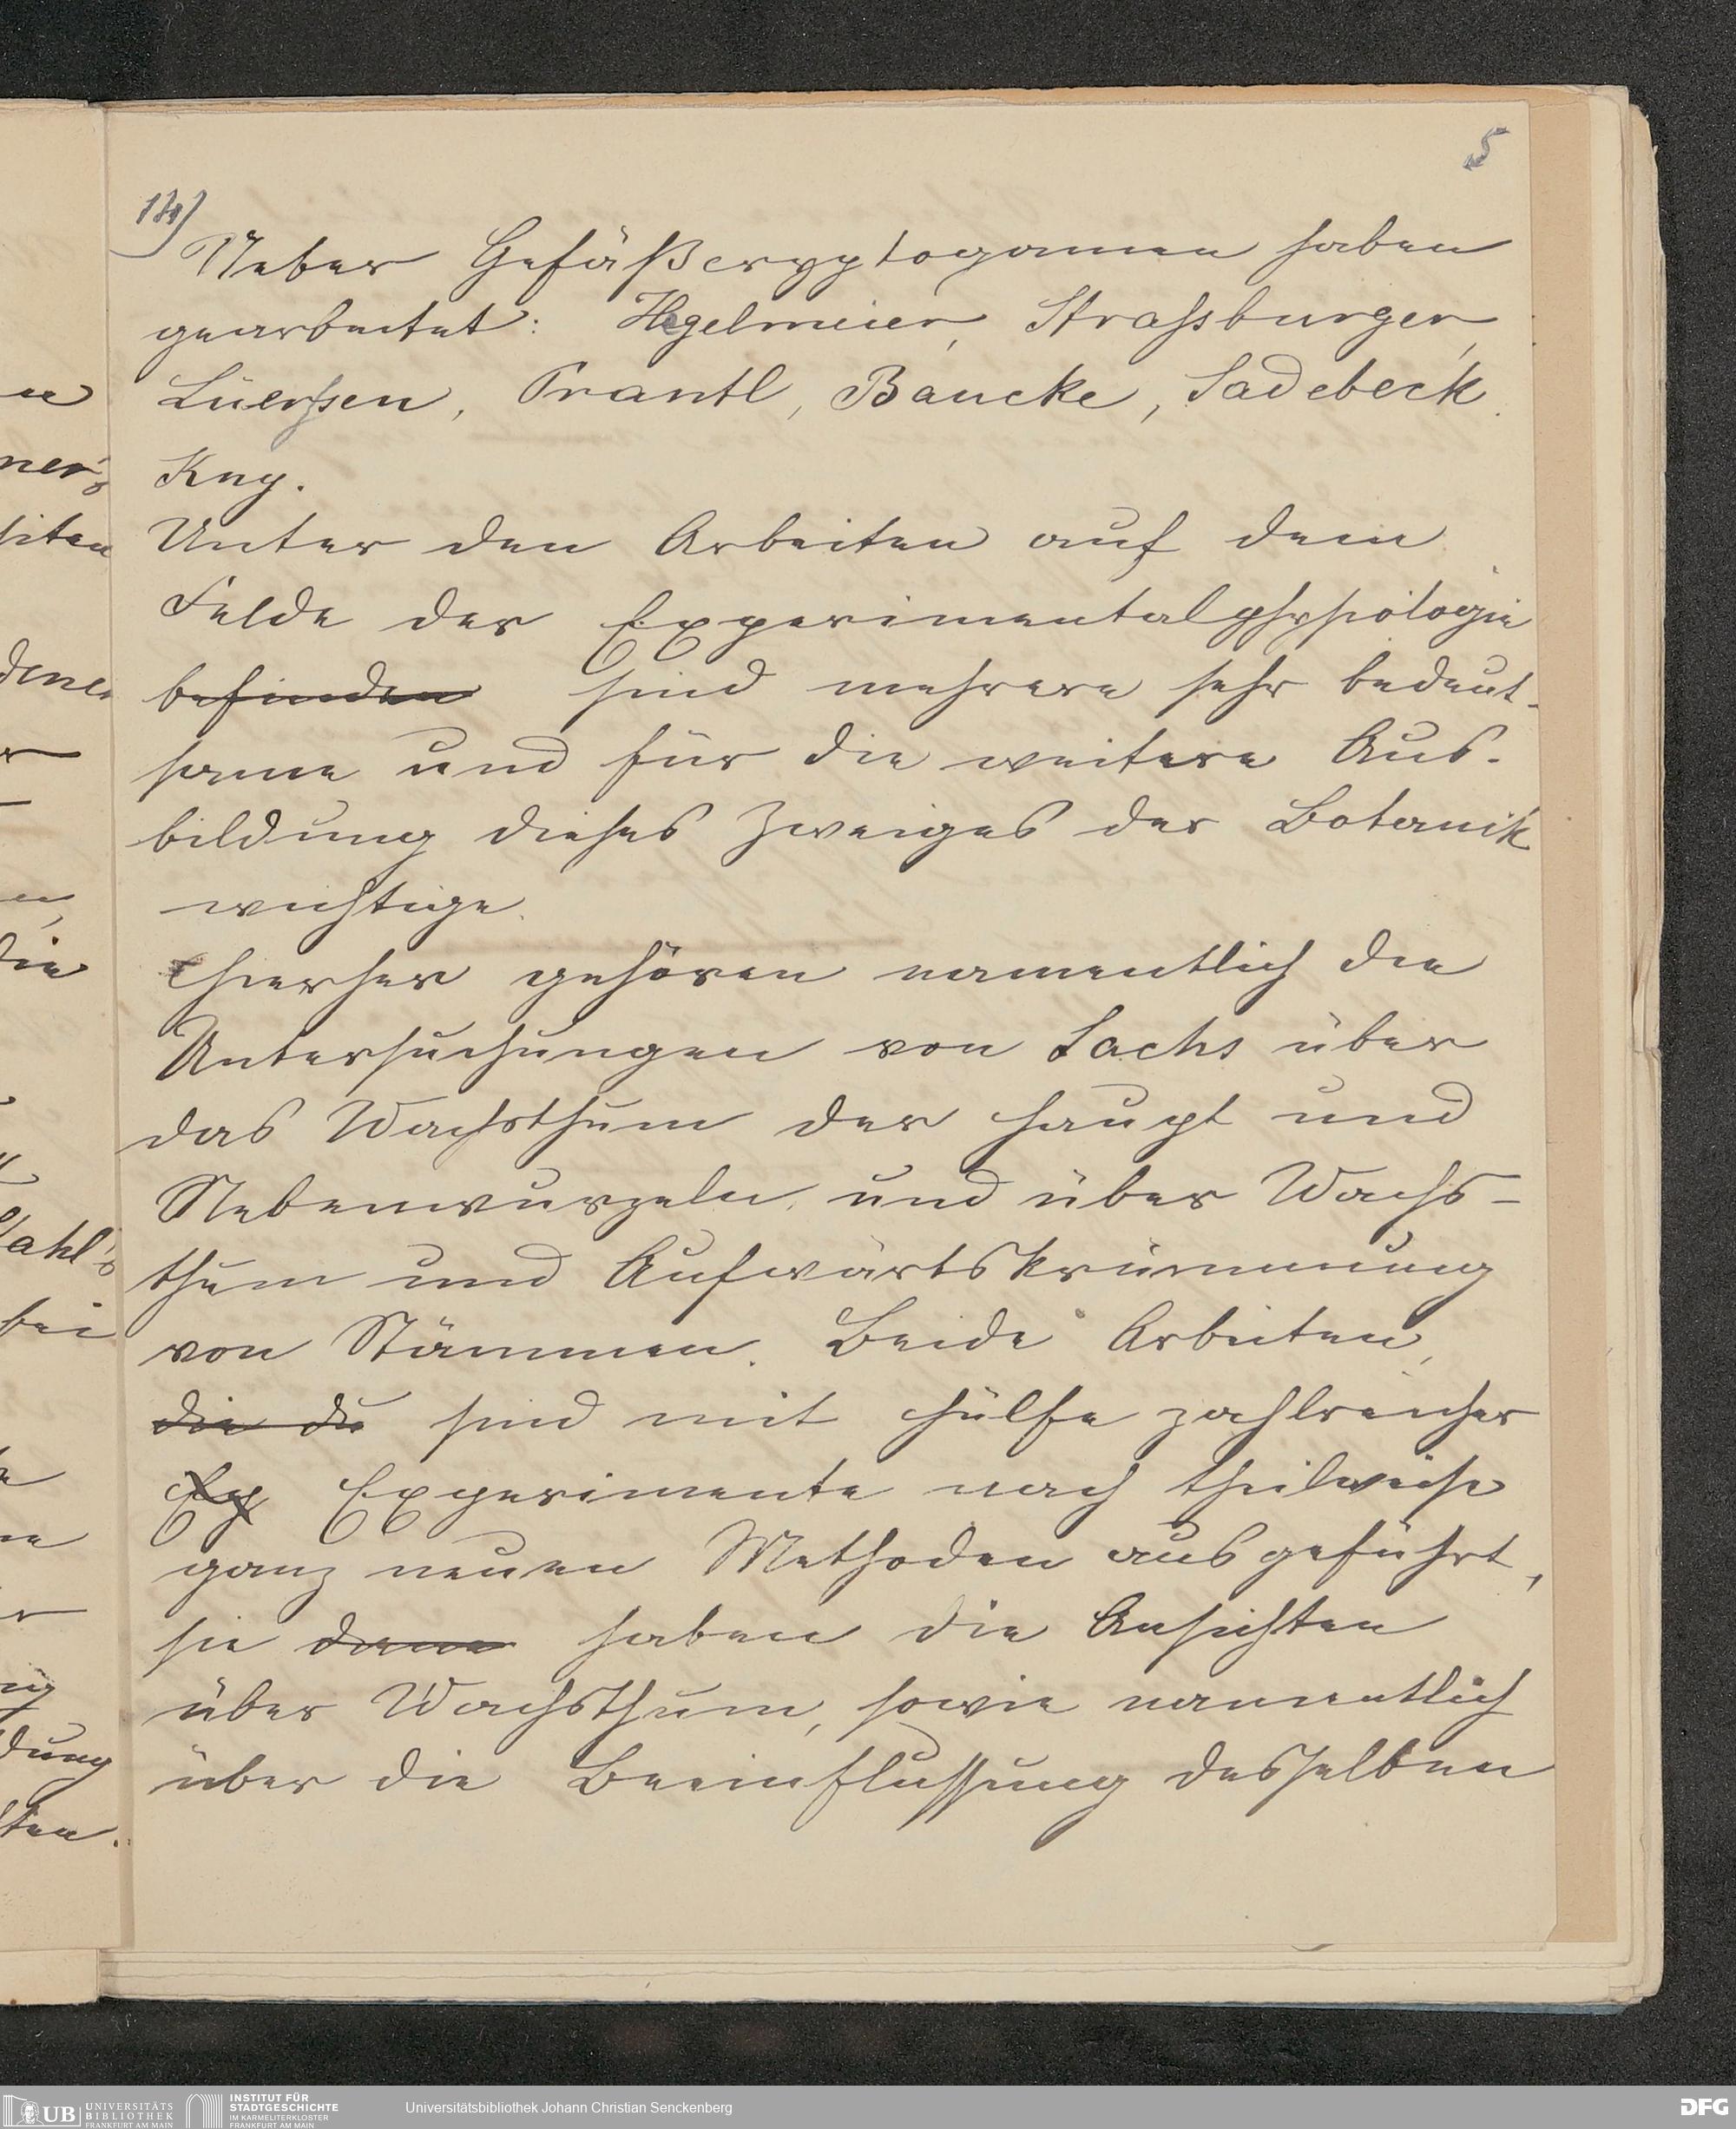 5
14)
Ueber Gefäßcryptogamen haben
gearbeitet: Hegelmeier, Strassburger,
Lüerssen, Prantl, Baucke, Sadebeck.
Kny.
Unter den Arbeiten auf dem
Felde der Experimentalphysiologie
befinden sind mehrere sehr bedeut-
same und für die weitere Aus-
bildung dieses Zweiges der Botanik
wichtige.
Hierher gehören namentlich die
Untersuchungen von Sachs über
das Wachsthum der Haupt und
Nebenwurzeln, und über Wachs-
thum und Aufwärtskrümmung
von Stämmen. Beide Arbeiten,
die die sind mit Hülfe zahlreicher
Ex Experimente nach theilweise
ganz neuen Methoden ausgeführt,
sie haben die Ansichten
über Wachsthum, sowie namentlich
über die Beeinflussung desselben
ner's
siten
dene
die
tahl's
bei
dung
UB
UNIVERSITÄTS
BIBLIOTHEK
FRANKFURT AM MAIN
INSTITUT FÜR
STADTGESCHICHTE
IM KARMELITERKLOSTER
FRANKFURT AM MAIN
Universitätsbibliothek Johann Christian Senckenberg
DFG